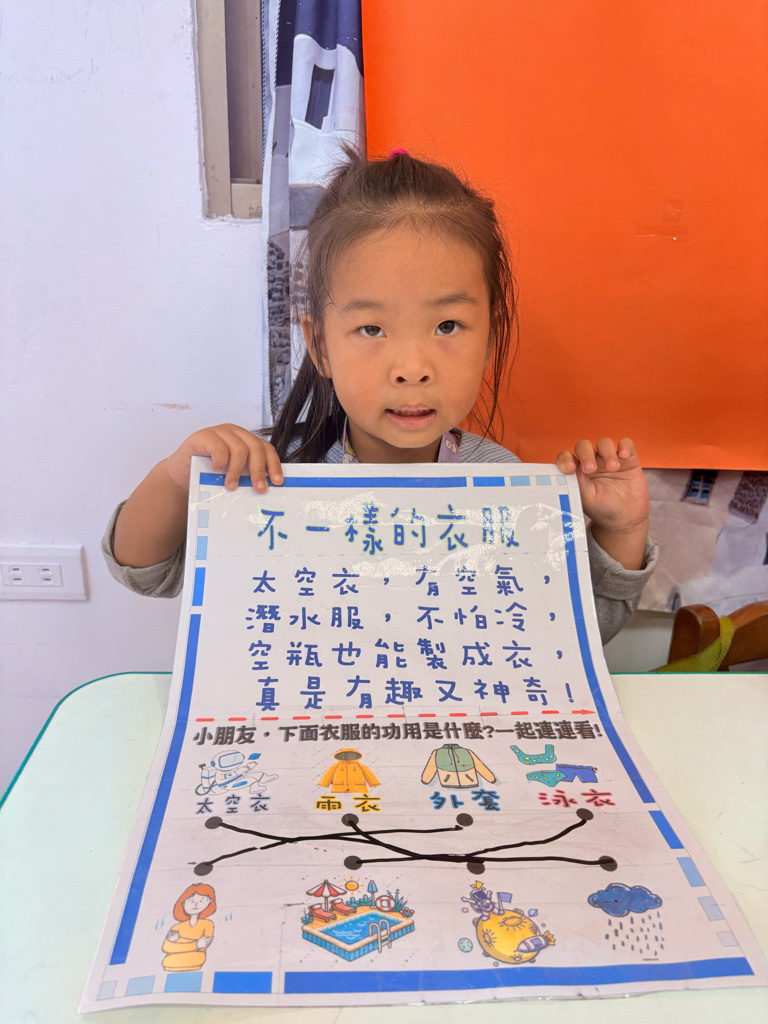 不一樣的衣服
太空衣，有空氣，
潛水服，不怕冷，
空瓶也能製成衣，
真是有趣又神奇！
小朋友，下面衣服的功用是什麼?一起連連看!
太空衣 雨衣 外套 泳衣